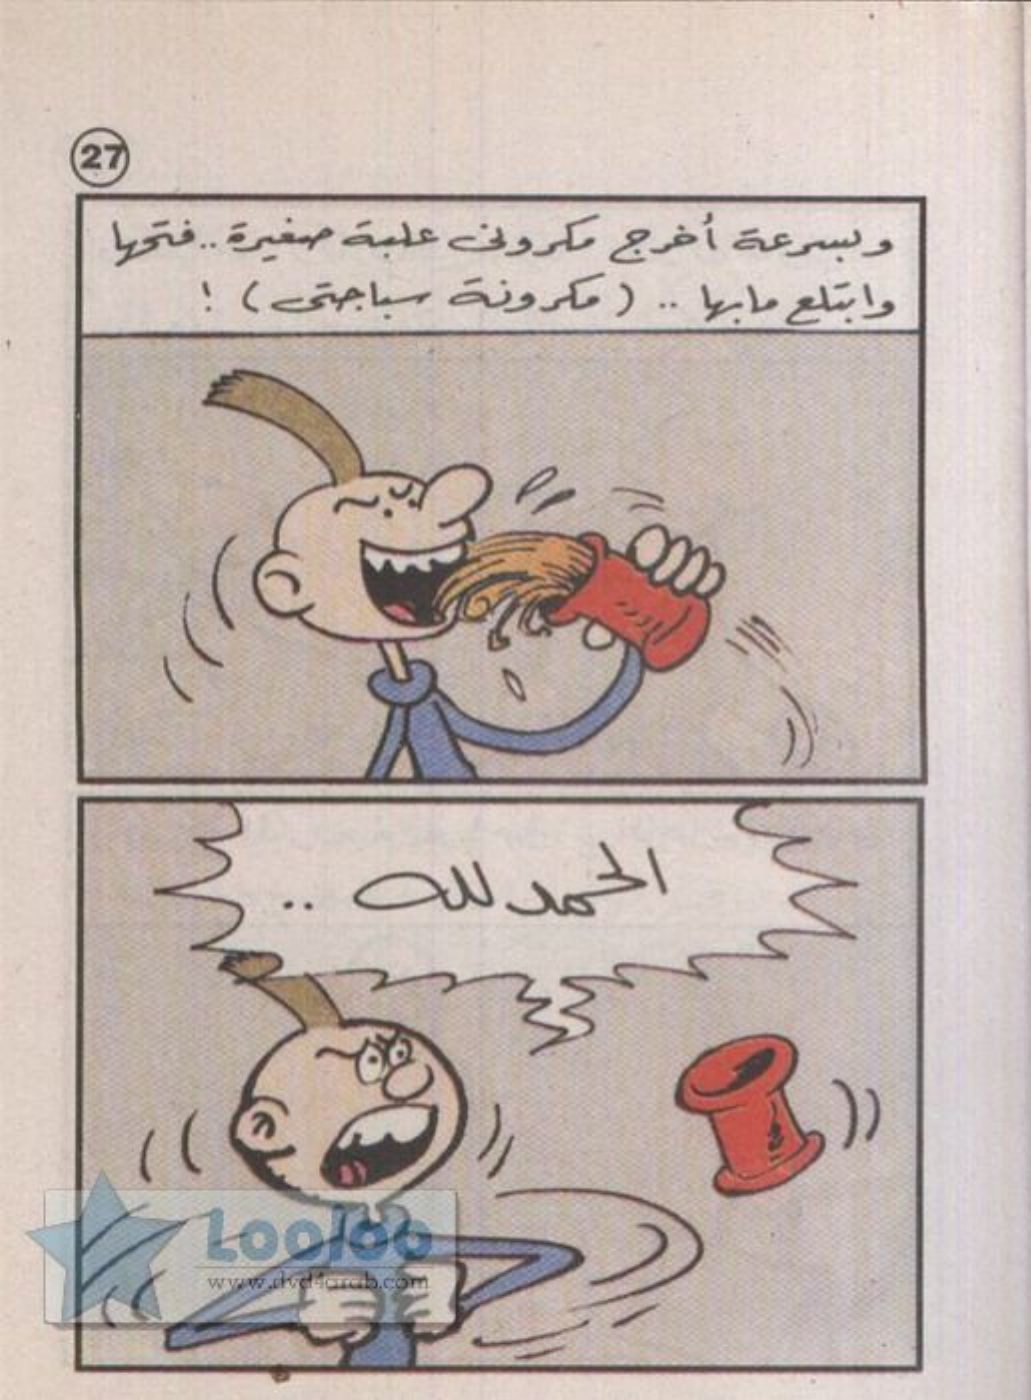 27
وبسرعة أخرج مكرونى علبة صغيرة .. فتحها
وابتلع مابها .. (مكرونة سباجتى) !
الحمد لله ..
Looloo
www.dvd4arab.com